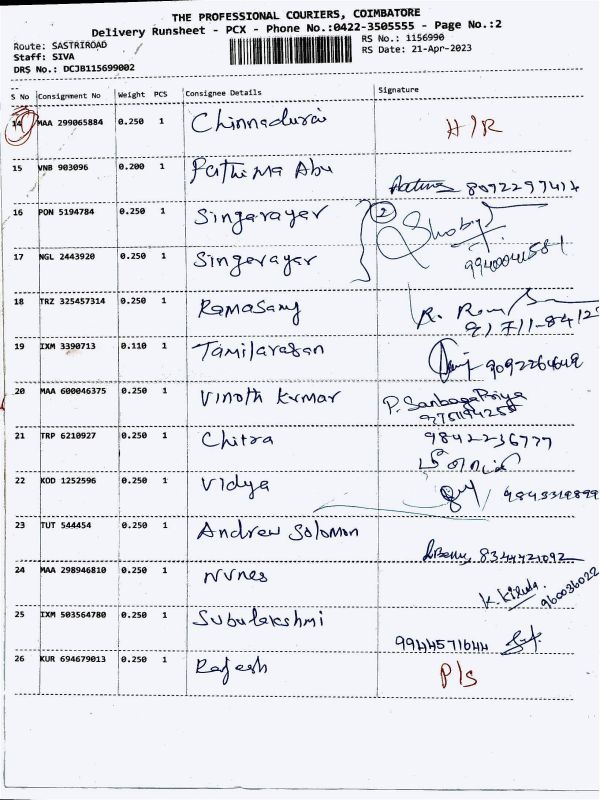 THE PROFESSIONAL COURIERS, COIMBATORE
Delivery Runsheet - PCX - Phone No.:0422-3505555 - Page No.:2
Route: SASTRIROAD RS No.: 1156990
Staff: SIVA RS Date: 21-Apr-2023
DRS No.: DCJB115699002
S No Consignment No Weight PCS Consignee Details Signature
14 MAA 299065884 0.250 1 Chinnadurai H/R
15 VNB 903096 0.200 1 Fathima Abu 8072297414
16 PON 5194784 0.250 1 Singarayer 2
17 NGL 2443920 0.250 1 Singarayar 9940041581
18 TRZ 325457314 0.250 1 Ramasamy
19 IXM 3390713 0.110 1 Tamilarasan 9092264649
20 MAA 600046375 0.250 1 Vinoth Kumar P. SanbagaPriya
21 TRP 6210927 0.250 1 Chitra 9842236777
22 KOD 1252596 0.250 1 Vidya
23 TUT 544454 0.250 1 Andrew Solomon 8344421092
24 MAA 298946810 0.250 1 960036022
25 IXM 503564780 0.250 1 Subulakshmi 9944571644
26 KUR 694679013 0.250 1 Rajesh P/s